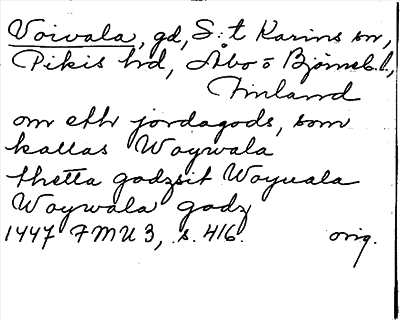 Voivala, gd, S:t Karins sn,
Pikis hd, Åbo o Björneb. l,
Finland
om eth jordagods, som
kallas Woywala
thetta godzsit Woyuala
Woywala godz
1447 FMU 3, s. 416. orig.